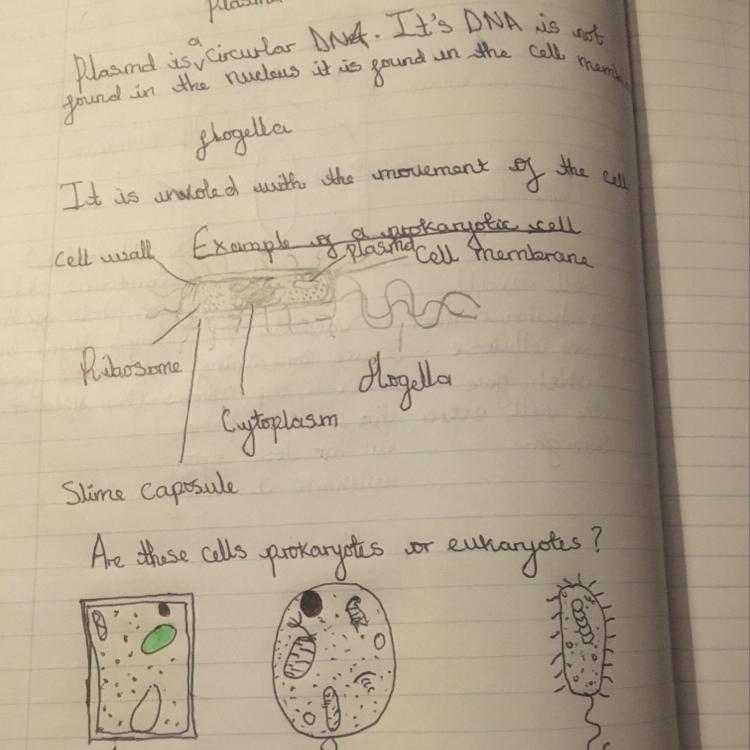 Plasmid is a Circular DNA. It's DNA is not
found in the nucleus it is found in the cell
flogella
It is involed with the movement of the cell
Example of a prokaryotic cell
Cell wall
plasmid
Cell membrane
Ribosome
flogella
Cytoplasm
Slime caposule
Are these cells prokaryotes or eukaryotes?